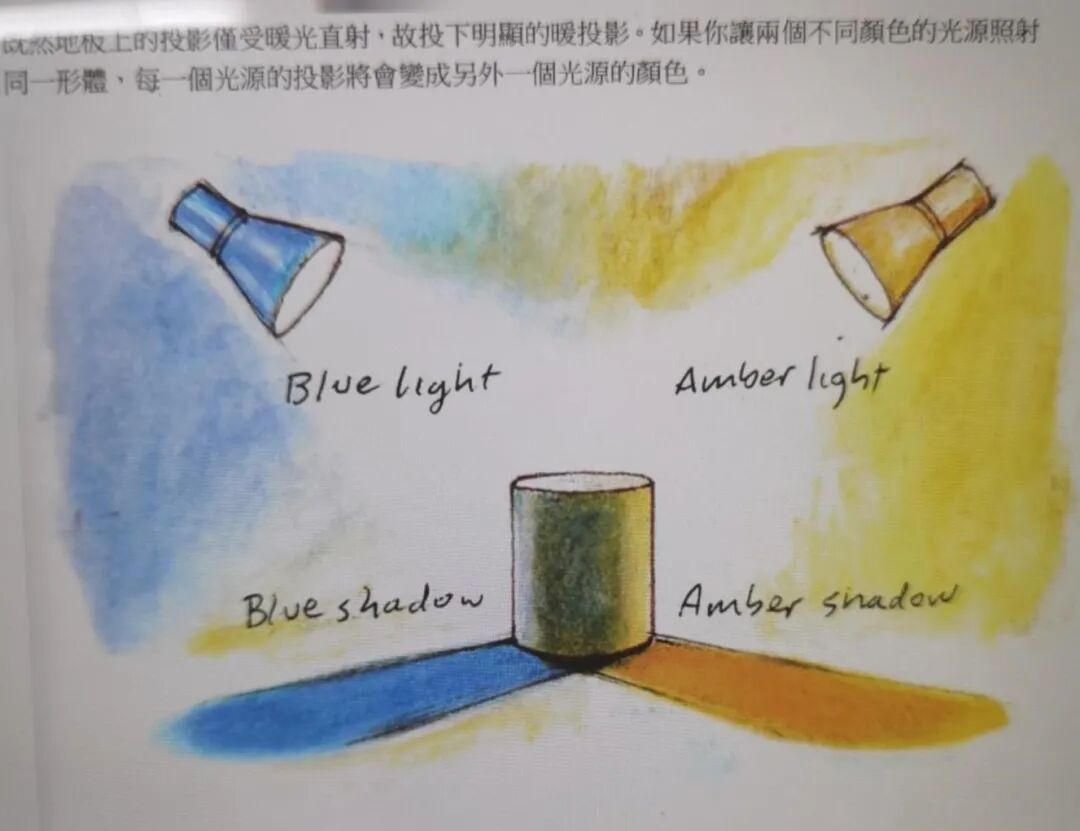 既然地板上的投影僅受暖光直射，故投下明顯的暖投影。如果你讓兩個不同顏色的光源照射
同一形體，每一個光源的投影將會變成另外一個光源的顏色。
Blue light
Amber light
Blue shadow
Amber shadow